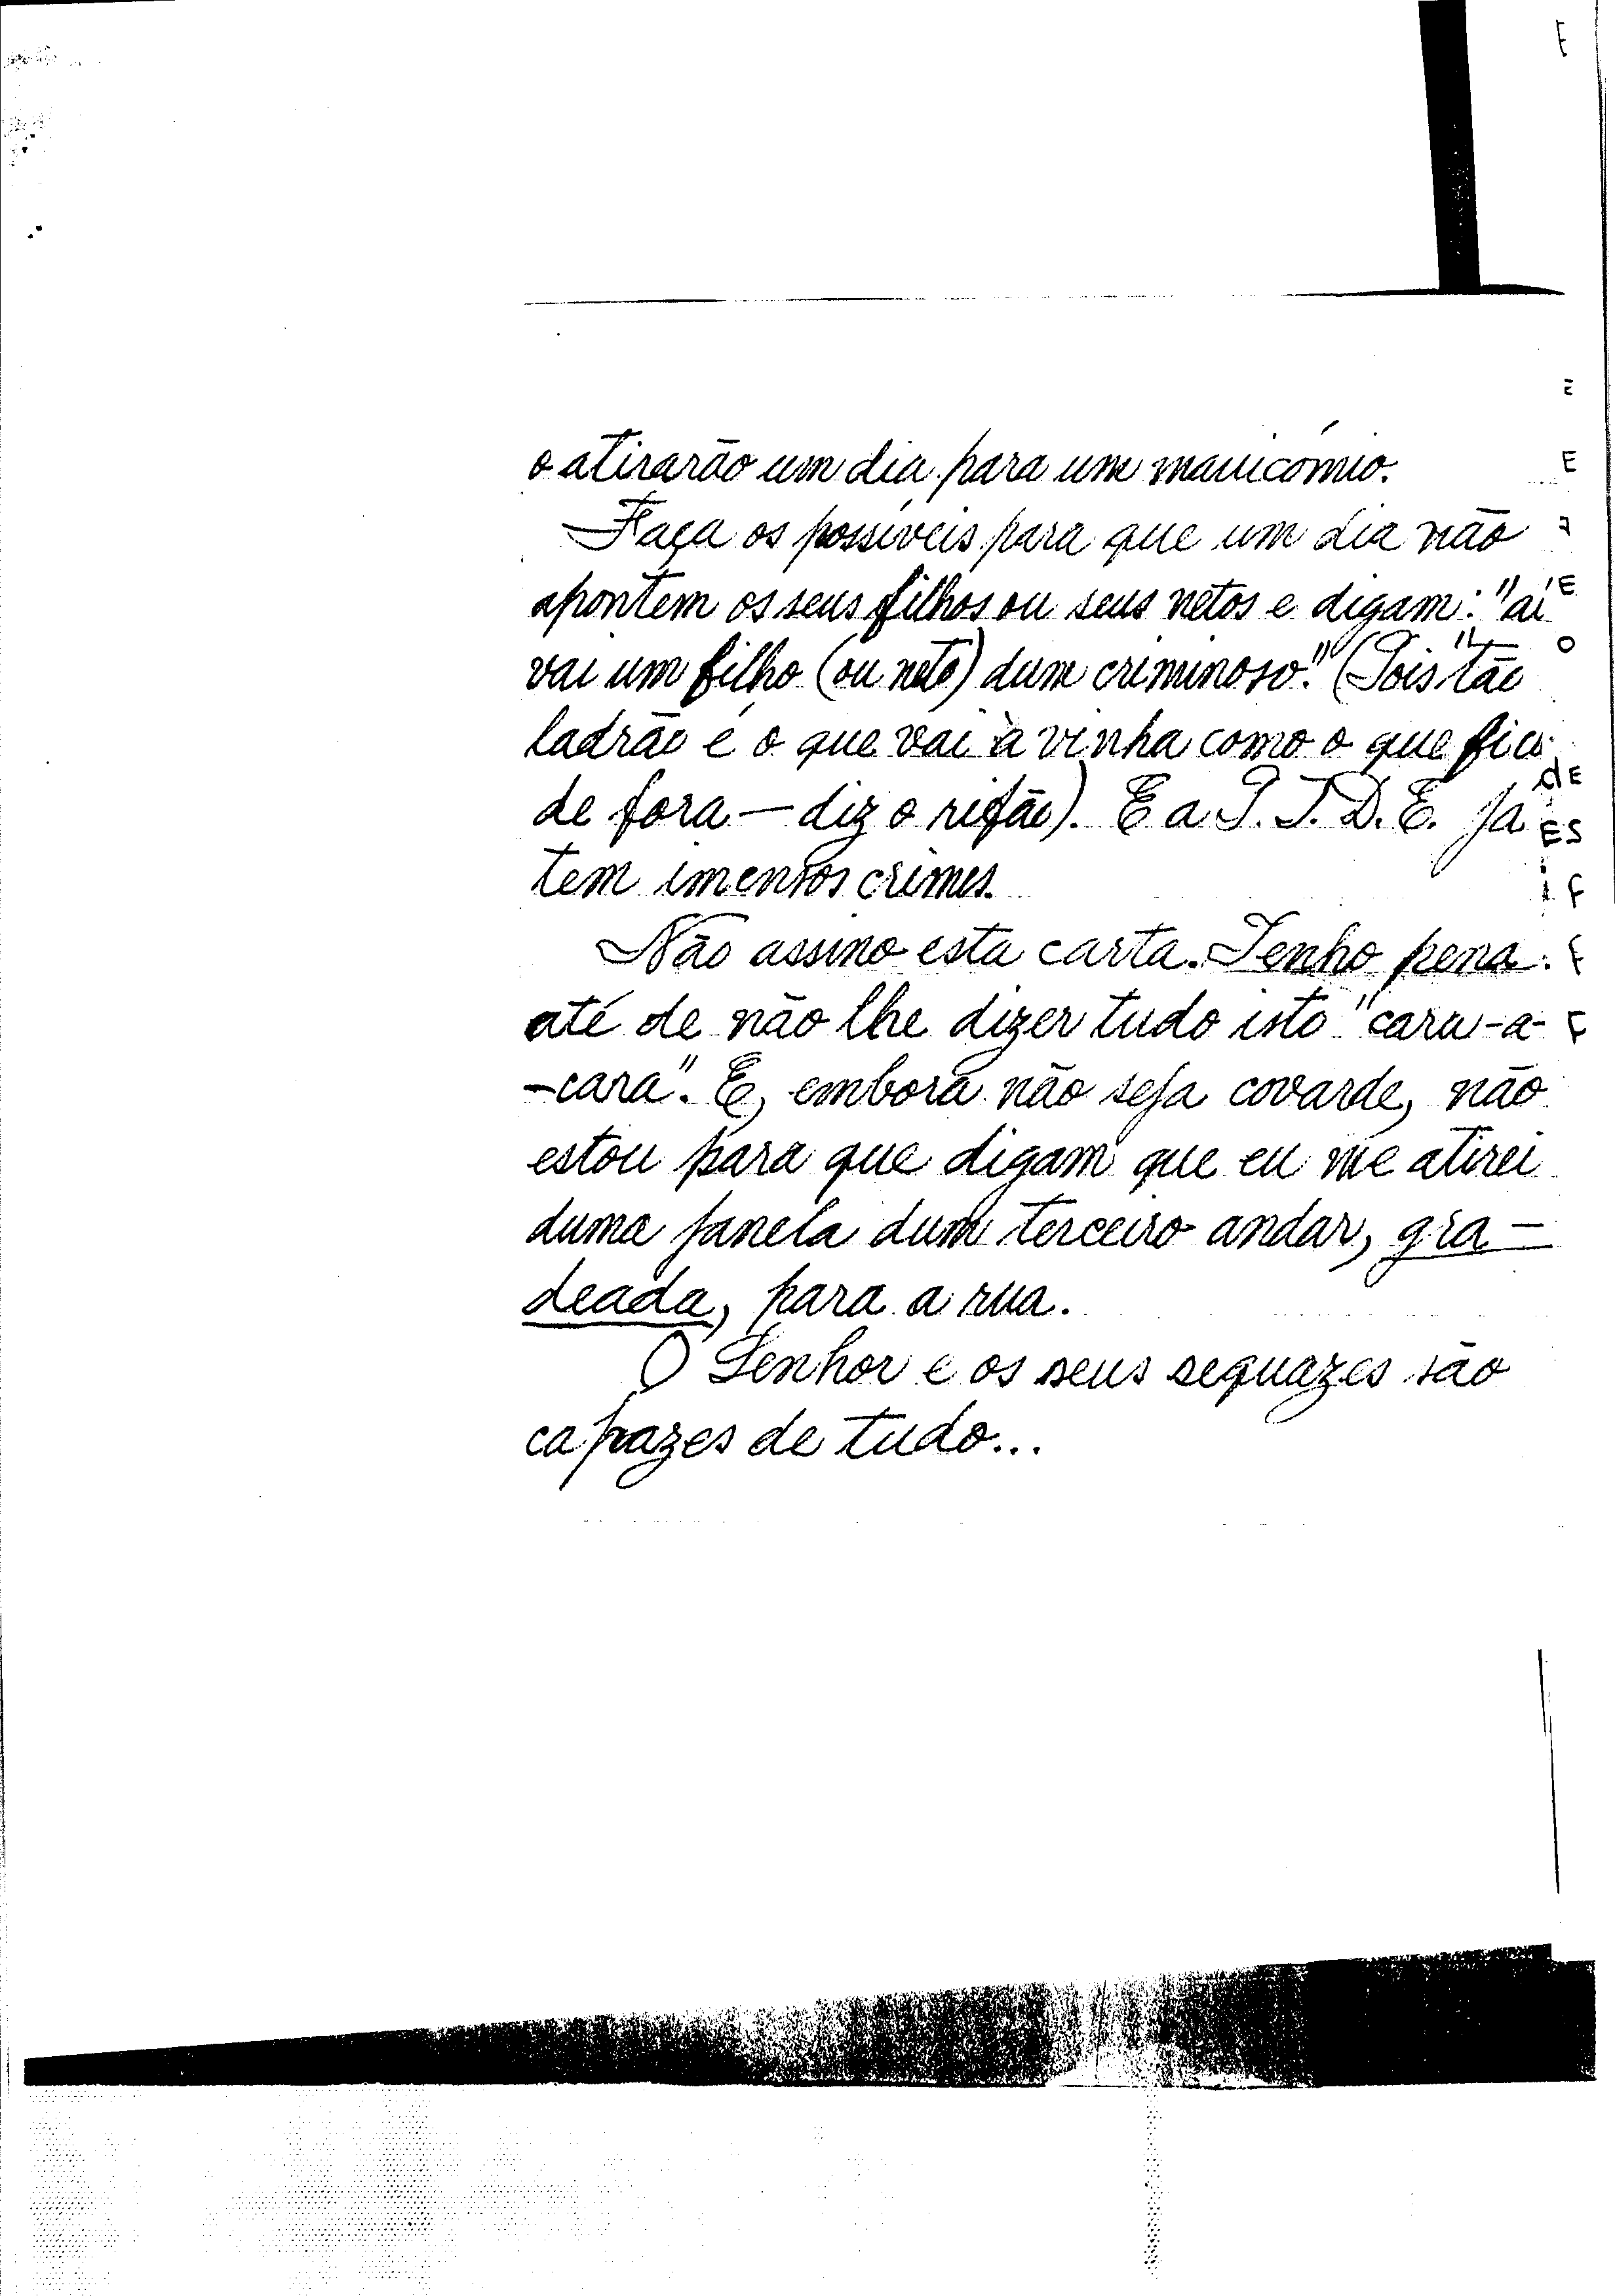 o atirarão um dia para um manicómio.
Faça os possíveis para que um dia não
apontem os seus filhos ou seus netos e digam: "aí
vai um filho (ou neto) dum criminoso." (Pois "tão
ladrão é o que vai à vinha como o que fica
de fora — diz o rifão). E a P. I. D. E. já
tem imensos crimes.
Não assino esta carta. Tenho pena
até de não lhe dizer tudo isto "cara-a-
-cara". E, embora não seja covarde, não
estou para que digam que eu me atirei
duma janela dum terceiro andar, gra-
deada, para a rua.
O Senhor e os seus sequazes são
capazes de tudo...